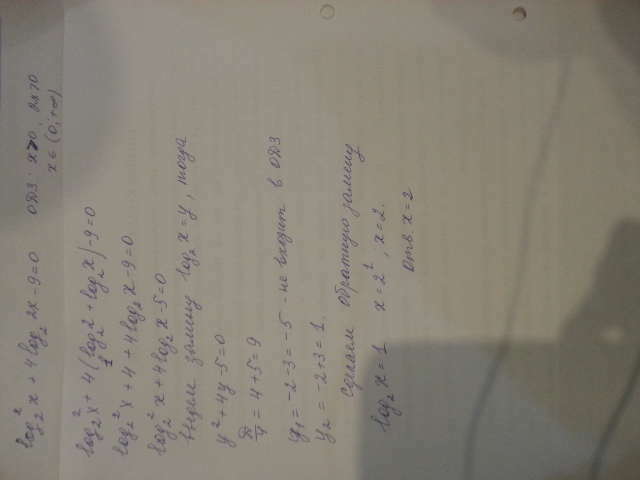 log₂² x + 4 log₂ 2x - 9 = 0 ОДЗ: x > 0, 2x > 0
x ∈ (0; +∞)
log₂² x + 4 (log₂ 2 + log₂ x) - 9 = 0
1
log₂² x + 4 + 4 log₂ x - 9 = 0
log₂² x + 4 log₂ x - 5 = 0
введем замену log₂ x = y, тогда
y² + 4y - 5 = 0
D/4 = 4 + 5 = 9
y₁ = -2 - 3 = -5 - не входит в ОДЗ
y₂ = -2 + 3 = 1.
сделаем обратную замену
log₂ x = 1 x = 2¹, x = 2.
Отв. x = 2